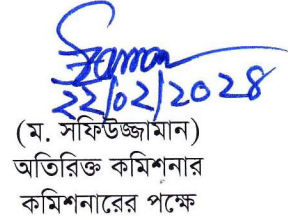 22/02/2028
(ম. সফিউজ্জামান)
অতিরিক্ত কমিশনার
কমিশনারের পক্ষে